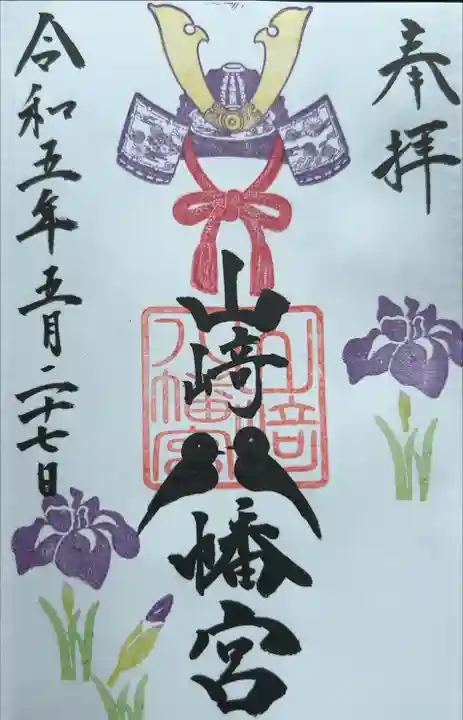 奉拝
山崎八幡宮
山﨑八幡宮
令和五年五月二十七日